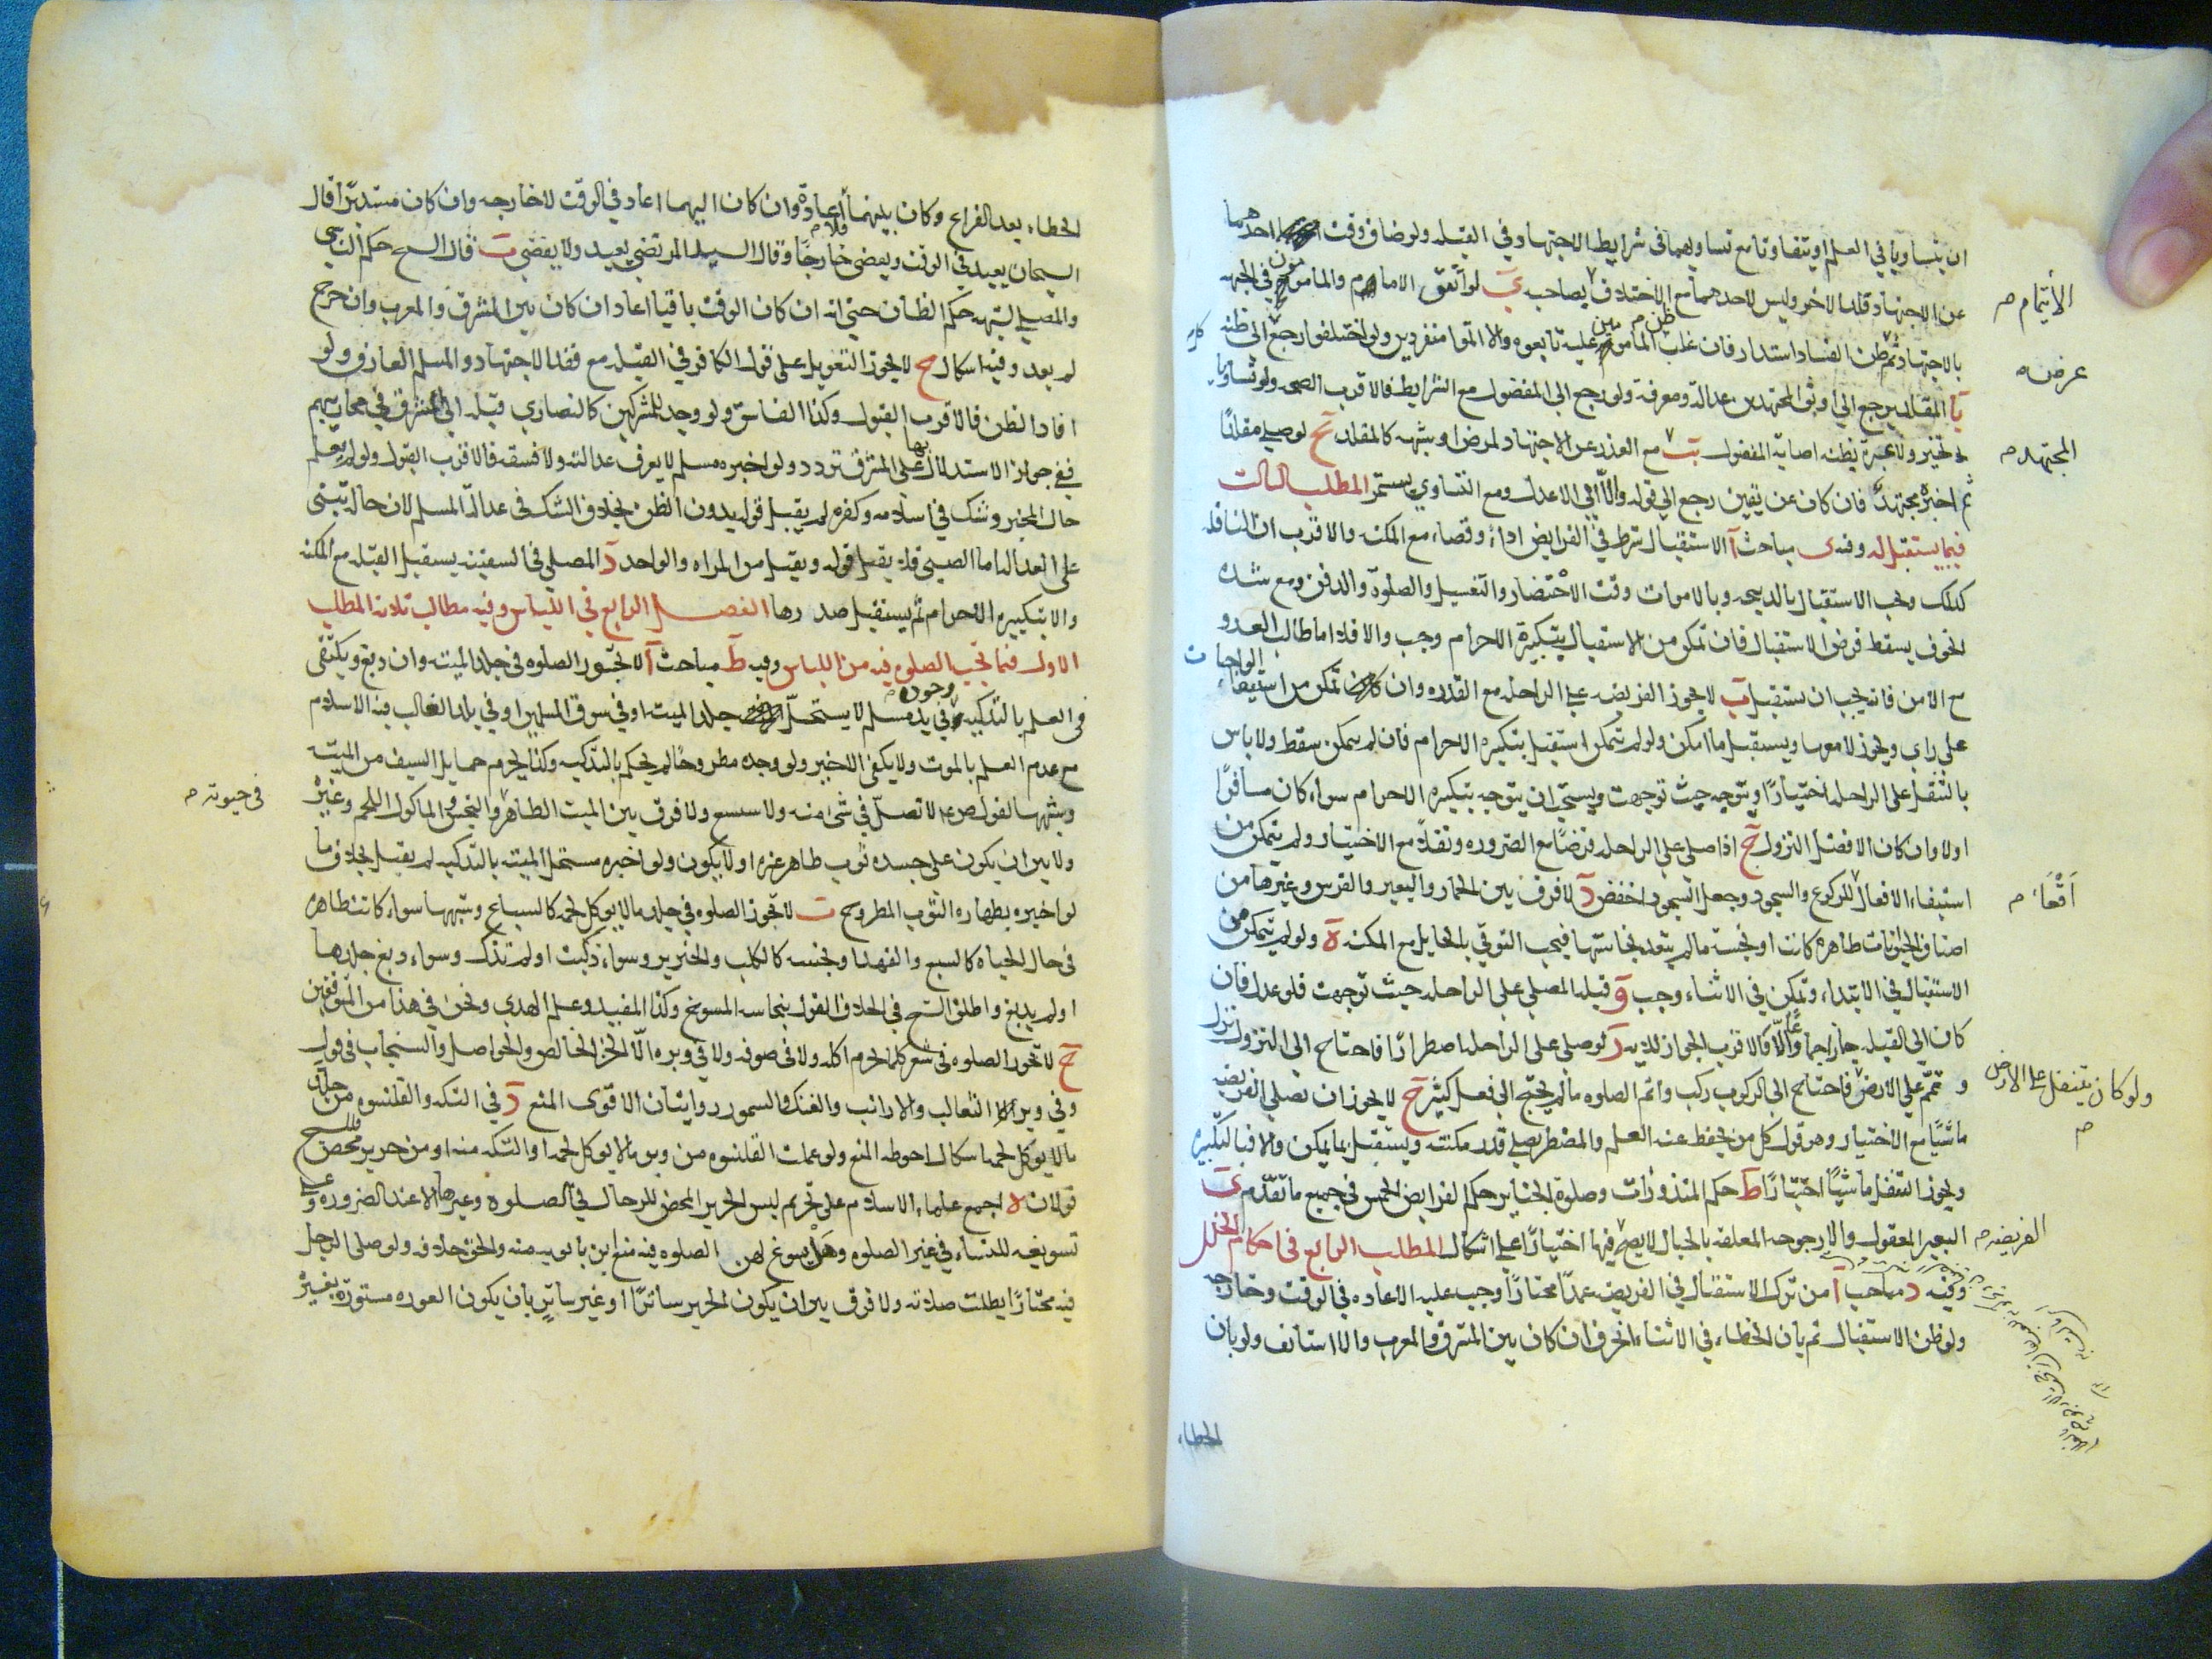 ان يتساويا في العلم او يتفاوتا مع تساويهما في شرايط الاجتهاد في القبله ولو ضاق وقت احدهما
عن الاجتهاد قلد الاخر وليس لاحدهما مع الاختلاف الايتمام بصاحبه ى لو اتفق الامام والمامومون في الجهه
بالاجتهاد ثم عرض ظن الفساد استدار فان غلب ظن المامومين عليه تابعوه والا اتموا منفردين ولو اختلفوا رجع كل الى ظنه
يا المقلد يرجع الى اوثق المجتهدين عدالة ومعرفة ولو رجع الى المفضول مع الشرايط فالاقرب الصحه ولو تساويا
تخير ولا عبرة بظنه اصابة المفضول يب المجتهد مع العذر عن الاجتهاد لمرض او شبهه كالمقلد يج لو صلى مقلدا
ثم اخبره مجتهد فان كان عن يقين رجع الى قوله والا الى الاعدل ومع التساوي يستمر المطلب الثالث
فيما يستقبل له وفيه مباحث ا الاستقبال شرط في الفرايض اداء وقضاء مع المكنه والاقرب ان النافله
كذلك ويجب الاستقبال بالذبيحه وبالاموات وقت الاحتضار والتغسيل والصلوة والدفن ومع شده
الخوف يسقط فرض الاستقبال فان تمكن من الاستقبال بتكبيرة الاحرام وجب والا فلا اما طالب العدو
مع الامن فانه يجب ان يستقبل ب لا يجوز الفريضه على الراحله مع القدره وان تمكن من استيفاء الواجبات
على راى ويجوز لا معها ويستقبل ما امكن ولو لم يتمكن استقبل بتكبيره الاحرام فان لم يتمكن سقط ولا باس
بالتنفل على الراحله اختيارا ويتوجه حيث توجهت ويستحب ان يتوجه بتكبيره الاحرام سواء كان مسافرا
اولا وان كان الافضل النزول ج اذا صلى على الراحله فرضا مع الضروره ونفلا مع الاختيار ولم يتمكن من
استيفاء الافعال اومأ للركوع والسجود وجعل السجود اخفض د لا فرق بين الحمار والبعير والفرس وغيرها من
اصناف الحيوانات طاهره كانت او نجسة ما لم يتعد نجاستها فيجب التوقي بالحايل مع المكنه ه ولو لم يتمكن من
الاستقبال في الابتداء وتمكن في الاثناء وجب و قبلة المصلي على الراحله حيث توجهت فلو عدل فان
كان الى القبله جاز اجماعا والا فالاقرب الجواز للايه ز لو صلى على الراحله اضطرارا فاحتاج الى النزول نزل
وتمم على الارض ولو كان يتنفل على الارض فاحتاج الى الركوب ركب واتم الصلوه ما لم يحتج الى فعل كثير ح لا يجوز ان يصلي الفريضه
ماشيا مع الاختيار وهو قول كل من يحفظ عنه العلم والمضطر يصلي قدر مكنته ويستقبل بما يمكن والا فبالتكبيره
ويجوز التنفل ماشيا اختيارا ط حكم المنذورات وصلوة الجنايز حكم الفرايض الخمس في جميع ما تقدم ى
البعير المعقول والارجوحه المعلقه بالحبال لا يصح الفريضه فيها اختيارا على اشكال المطلب الرابع في احكام الخلل
وفيه د مباحث ا من ترك الاستقبال في الفريضه عمدا مختارا وجب عليه الاعاده في الوقت وخارجه
ولو ظن الاستقبال ثم بان الخطاء في الاثناء انحرف ان كان بين المشرق والمغرب والا استانف ولو بان
الخطاء
الخطاء بعد الفراغ وكان بينهما فلا اعادة وان كان اليهما اعاد في الوقت لا خارجه وان كان مستدبرا قال
الشيخان يعيد في الوقت ويقضي خارجا وقال السيد المرتضى يعيد ولا يقضي ب قال الشيخ حكم الناسي
والمصلي لشبهه حكم الظان حتى انه ان كان الوقت باقيا اعاد ان كان بين المشرق والمغرب وان خرج
لم يعد وفيه اشكال ج لا يجوز التعويل على قول الكافر في القبله مع فقد الاجتهاد والمسلم العارف ولو
افاد الظن فالاقرب القبول وكذا الفاسق ولو وجد للمشركين كالنصارى قبله الى المشرق في محاريبهم
ففي جواز الاستدلال بها على المشرق تردد ولو اخبره مسلم لا يعرف عدالته ولا فسقه فالاقرب القبول ولو لم يعلم
حال المخبر وشك في اسلامه وكفره لم يقبل قوله بدون الظن بخلاف الشك في عدالة المسلم لان حاله تبتني
على العداله اما الصبي فلا يقبل قوله ويقبل من المراه والواحد د المصلي في السفينه يستقبل القبله مع المكنه
والا بتكبيره الاحرام ثم يستقبل صدرها الفصل الرابع في اللباس وفيه مطالب ثلاثه المطلب
الاول فيما تجب الصلوه فيه من اللباس وفيه ط مباحث ا لا تجوز الصلوه في جلد الميته وان دبغ ويكتفى
في العلم بالتذكيه وجوده في يد مسلم لا يستحل جلد الميته او في سوق المسلمين او في بلد الغالب فيه الاسلام
مع عدم العلم بالموت ولا يكفي الاخير ولو وجده مطروحا لم يحكم بالتذكيه وكذا يحرم حمايل السيف من الميته
وشبهها لقوله ص ع لا تصل في شئ منه ولا شسع ولا فرق بين الميت الطاهر في حيوته والنجس والماكول اللحم وغيره
ولا بين ان يكون على جسده ثوب طاهر غيره او لا يكون ولو اخبره مستحل الميته بالتذكيه لم يقبل بخلاف ما
لو اخبره بطهاره الثوب المطروح ب لا تجوز الصلوه في جلد ما لا يوكل لحمه كالسباع وشبهها سواء كانت طاهره
في حال الحياه كالسبع والفهد او نجسه كالكلب والخنزير وسواء ذكيت او لم تذك وسواء دبغ جلدها
او لم يدبغ واطلق الشيخ في الخلاف القول بنجاسه المسوخ وكذا المفيد وعلم الهدى ونحن في هذا من المتوقفين
ج لا تجوز الصلوه في شعر كلما حرم اكله ولا في صوفه ولا في وبره الا الخز الخالص والحواصل والسنجاب في قول
وفي وبر الثعالب والارانب والفنك والسمور روايتان الاقوى المنع د في التكه والقلنسوه من جلد
ما لا يوكل لحمه اشكال احوطه المنع ولو عملت القلنسوه من وبر ما لا يوكل لحمه او التكه منه او من حرير محض فللشيخ
قولان ه اجمع علماء الاسلام على تحريم لبس الحرير المحض للرجال في الصلوه وغيرها الا عند الضروره وعلى
تسويغه للنساء في غير الصلوه وهل يسوغ لهن الصلوه فيه منع ابن بابويه منه والحق خلافه ولو صلى الرجل
فيه مختارا بطلت صلاته ولا فرق بين ان يكون الحرير ساترا او غير ساتر بان يكون العوره مستورة بغيره